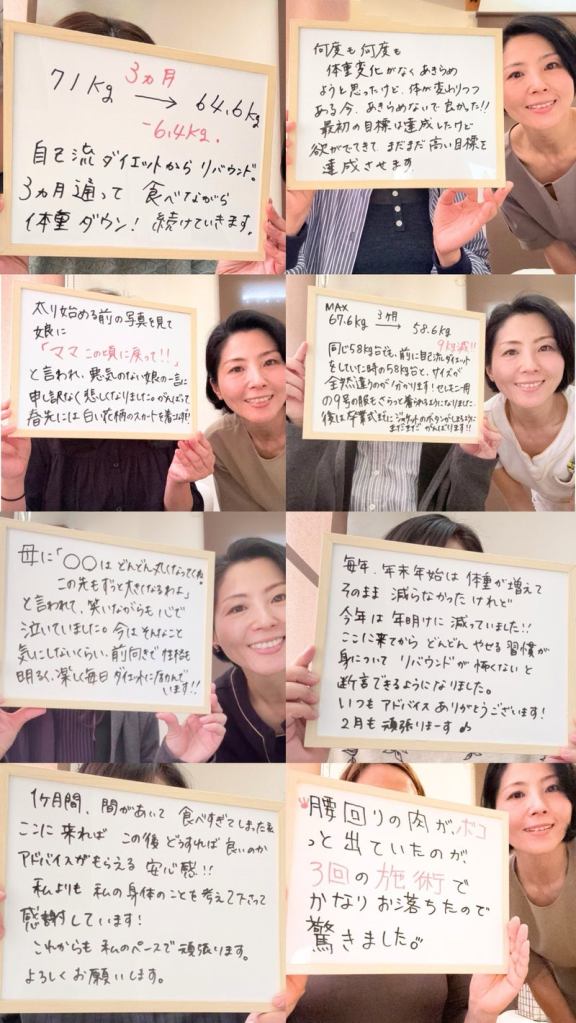 3ヵ月
71kg → 64.6kg
-6.4kg.
自己流ダイエットから リバウンド。
3ヵ月通って 食べながら
体重ダウン! 続けていきます。
何度も何度も
体重変化がなく あきらめ
ようと思ったけど、体が変わりつつ
ある今、あきらめないで良かった!!
最初の目標は達成したけど
欲がでてきて、まだまだ高い目標を
達成させます。
太り始める前の写真を見て
娘に
「ママ この頃に戻って!!」
と言われ、悪気のない娘の一言に
申し訳なく悲しくなりました。がんばって
春先には白い花柄のスカートを着こなす!!
MAX 3ヶ月
67.6kg → 58.6kg
9kg減!!
同じ58kg台でも、前に自己流ダイエット
をしていた時の58kg台と、サイズが
全然違うのが分かります!セレモニー用
の9号の服もさらっと着れるようになりました。
後は卒業式までにジャケットのボタンがしまるように
まだまだ がんばります!!
母に「○○は どんどん丸くなってくね。
この先もずっと大きくなるわよ」
と言われて、笑いながらも心で
泣いていました。今はそんなこと
気にしないくらい、前向きで性格も
明るく、楽しく毎日ダイエットに励んで
います!!
毎年、年末年始は 体重が増えて
そのまま 減らなかったけれど
今年は 年明けに 減っていました!!
ここに来てから どんどん やせる習慣が
身について リバウンドが 怖くないと
断言できるようになりました。
いつも アドバイス ありがとうございます!
2月も 頑張りまーす♪
1ヶ月間、間があいて 食べすぎてしまった私
ここに 来れば この後 どうすれば 良いのか
アドバイスがもらえる 安心感!!
私よりも 私の身体のことを 考えて下さって
感謝しています!
これからも 私のペースで 頑張ります。
よろしく お願いします。
腰回りの肉が、ボコ
っと出ていたのが、
3回の施術で
かなり お落ちたので
驚きました。